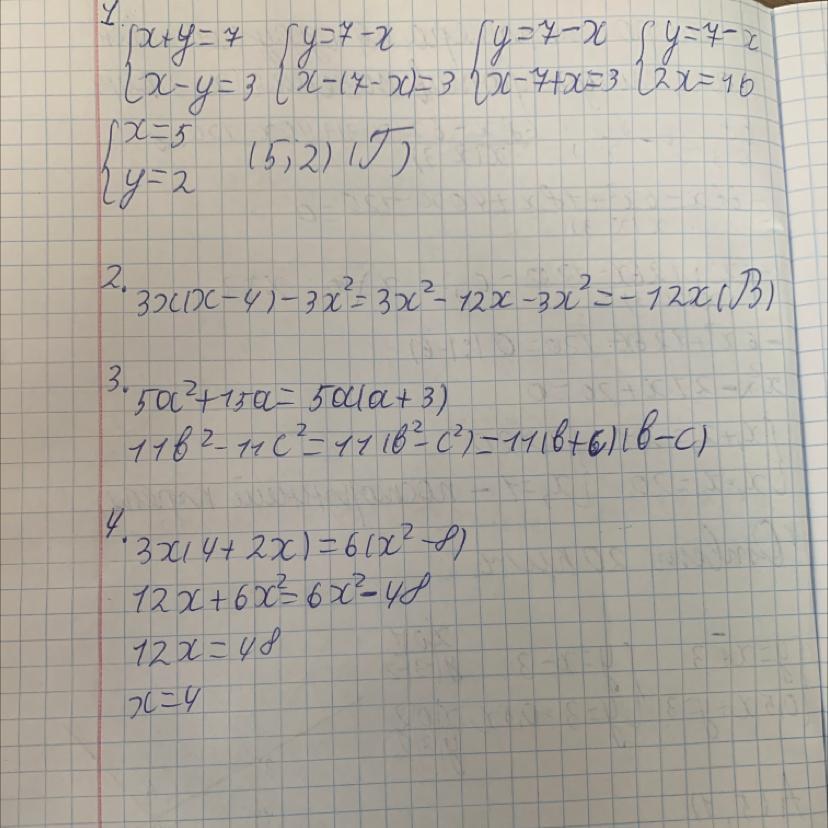 1.
{x+y=7 {y=7-x {y=7-x {y=7-x
{x-y=3 {x-(7-x)=3 {x-7+x=3 {2x=10
{x=5
{y=2 (5;2) (Г)
2. 3x(x-4)-3x²=3x²-12x-3x²=-12x (В)
3. 5a²+15a=5a(a+3)
11b²-11c²=11(b²-c²)=11(b+c)(b-c)
4. 3x(4+2x)=6(x²-8)
12x+6x²=6x²-48
12x=48
x=4